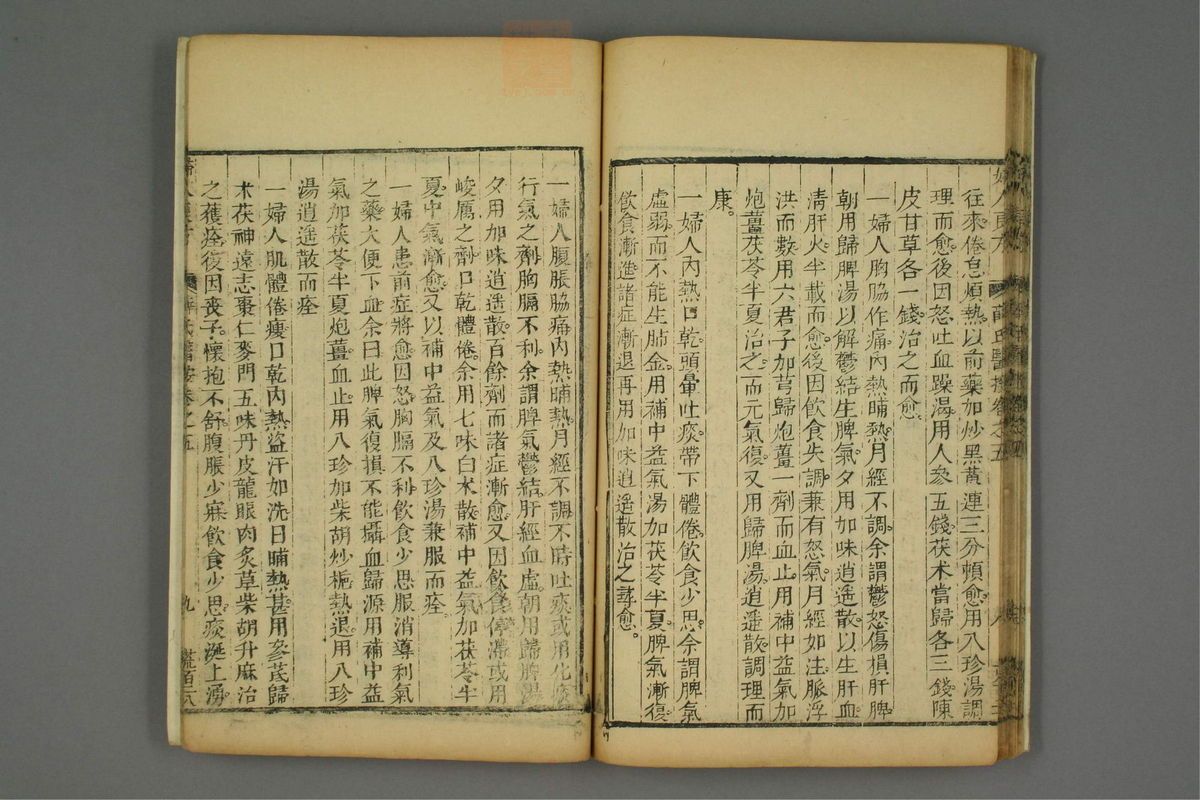 往來倦怠煩熱以前藥加炒黑黃連三分頓愈用八珍湯調
理而愈後因怒吐血躁渴用人參五錢茯朮當歸各三錢陳
皮甘草各一錢治之而愈
一婦人胸脇作痛內熱晡熱月經不調余謂鬱怒傷損肝脾
朝用歸脾湯以解鬱結生脾氣夕用加味逍遙散以生肝血
清肝火半載而愈後因飲食失調兼有怒氣月經如注脈浮
洪而數用六君子加芎歸炮薑一劑而血止用補中益氣加
炮薑茯苓半夏治之而元氣復又用歸脾湯逍遙散調理而
康
一婦人內熱口乾頭暈吐痰帶下體倦飲食少思余謂脾氣
虛弱而不能生肺金用補中益氣湯加茯苓半夏脾氣漸復
飲食漸進諸症漸退再用加味逍遙散治之尋愈
一婦人腹脹脇痛內熱晡熱月經不調不時吐痰或用化痰
行氣之劑胸膈不利余謂脾氣鬱結肝經血虛朝用歸脾湯
夕用加味逍遙散百餘劑而諸症漸愈又因飲食停滯或用
峻厲之劑口乾體倦余用七味白朮散補中益氣加茯苓半
夏中氣漸愈又以補中益氣及八珍湯兼服而痊
一婦人患前症將愈因怒胸膈不利飲食少思服消導利氣
之藥大便下血余曰此脾氣復損不能攝血歸源用補中益
氣加茯苓半夏炮薑血止用八珍加柴胡炒梔熱退用八珍
湯逍遙散而痊
一婦人肌體倦瘦口乾內熱盜汗如洗日晡熱甚用參芪歸
朮茯神遠志棗仁麥門五味丹皮龍眼肉炙草柴胡升麻治
之獲痊復因喪子懷抱不舒腹脹少寐飲食少思痰涎上湧